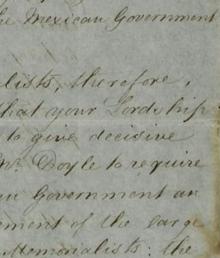 he Mexican Government
alists, therefore,
that your Lordship
to give decisive
Mr. Doyle to require
an Government an
ment of the large
Memorialists: the